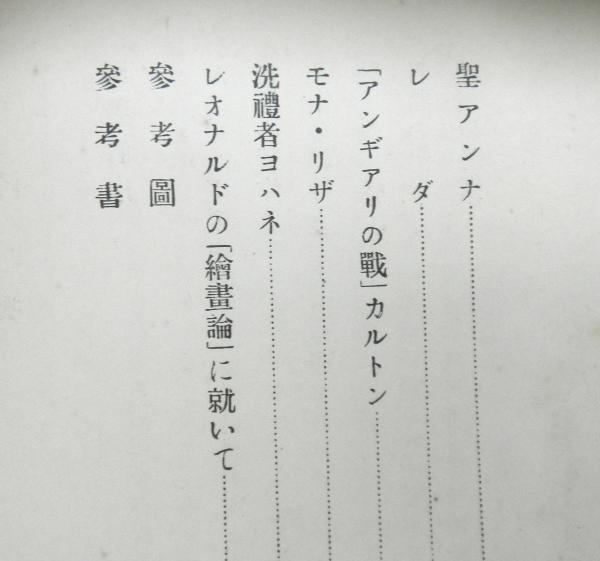 聖アンナ
レダ
「アンギアリの戰」カルトン
モナ・リザ
洗禮者ヨハネ
レオナルドの「繪畫論」に就いて
參考圖
參考書